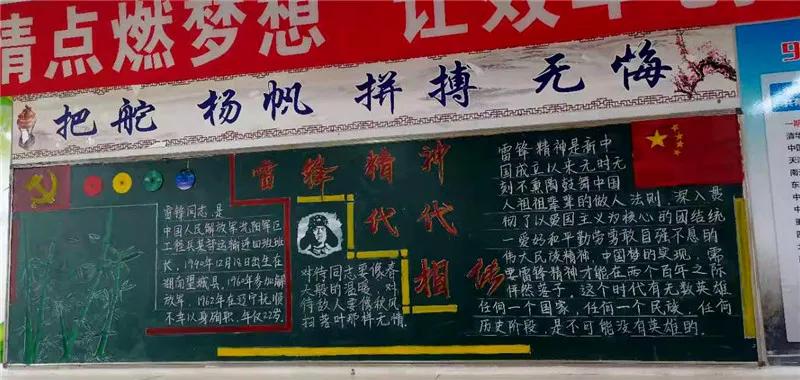 情点燃梦想 让效率
把舵 杨帆 拼搏 无悔
雷锋精神
代代相传
雷锋同志,是
中国人民解放军沈阳军区
工程兵某部运输连四班班
长,1940年12月18日出生在
湖南望城县,1960年参加解
放军,1962年在辽宁抚顺
不幸以身殉职,年仅22岁。
对待同志要像春
天般的温暖,对
待敌人要像秋风
扫落叶那样无情
雷锋精神是新中
国成立以来无时无
刻不熏陶鼓舞中国
人祖祖辈辈的做人法则,深入贯
彻了以爱国主义为核心的团结统
一爱好和平勤劳勇敢自强不息的
伟大民族精神,中国梦的实现,需
要雷锋精神才能在两个百年之际
怦然落子,这个时代有无数英雄
任何一个国家,任何一个民族,任何
历史阶段,是不可能没有英雄的。
一期
清华
中国
天津
南
东
中
中